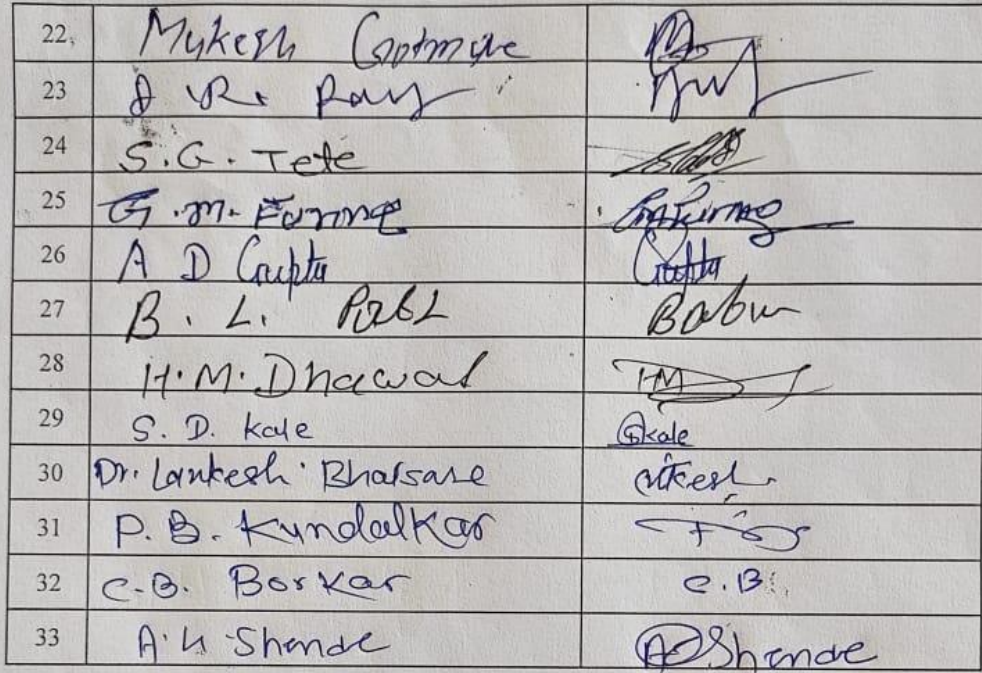 22, Mukesh Gotmare
23 J. R. Ray
24 S.G. Tete
25 G.M. Funne
26 A D Gupta Gupta
27 B. L. Babu
28 H.M. Dhawad HM
29 S. D. Kale Skale
30 Dr. Lankesh Bhaisare Lankesh
31 P. B. Kundalkar
32 C.B. Borkar C.B.
33 A. U. Shende A Shende